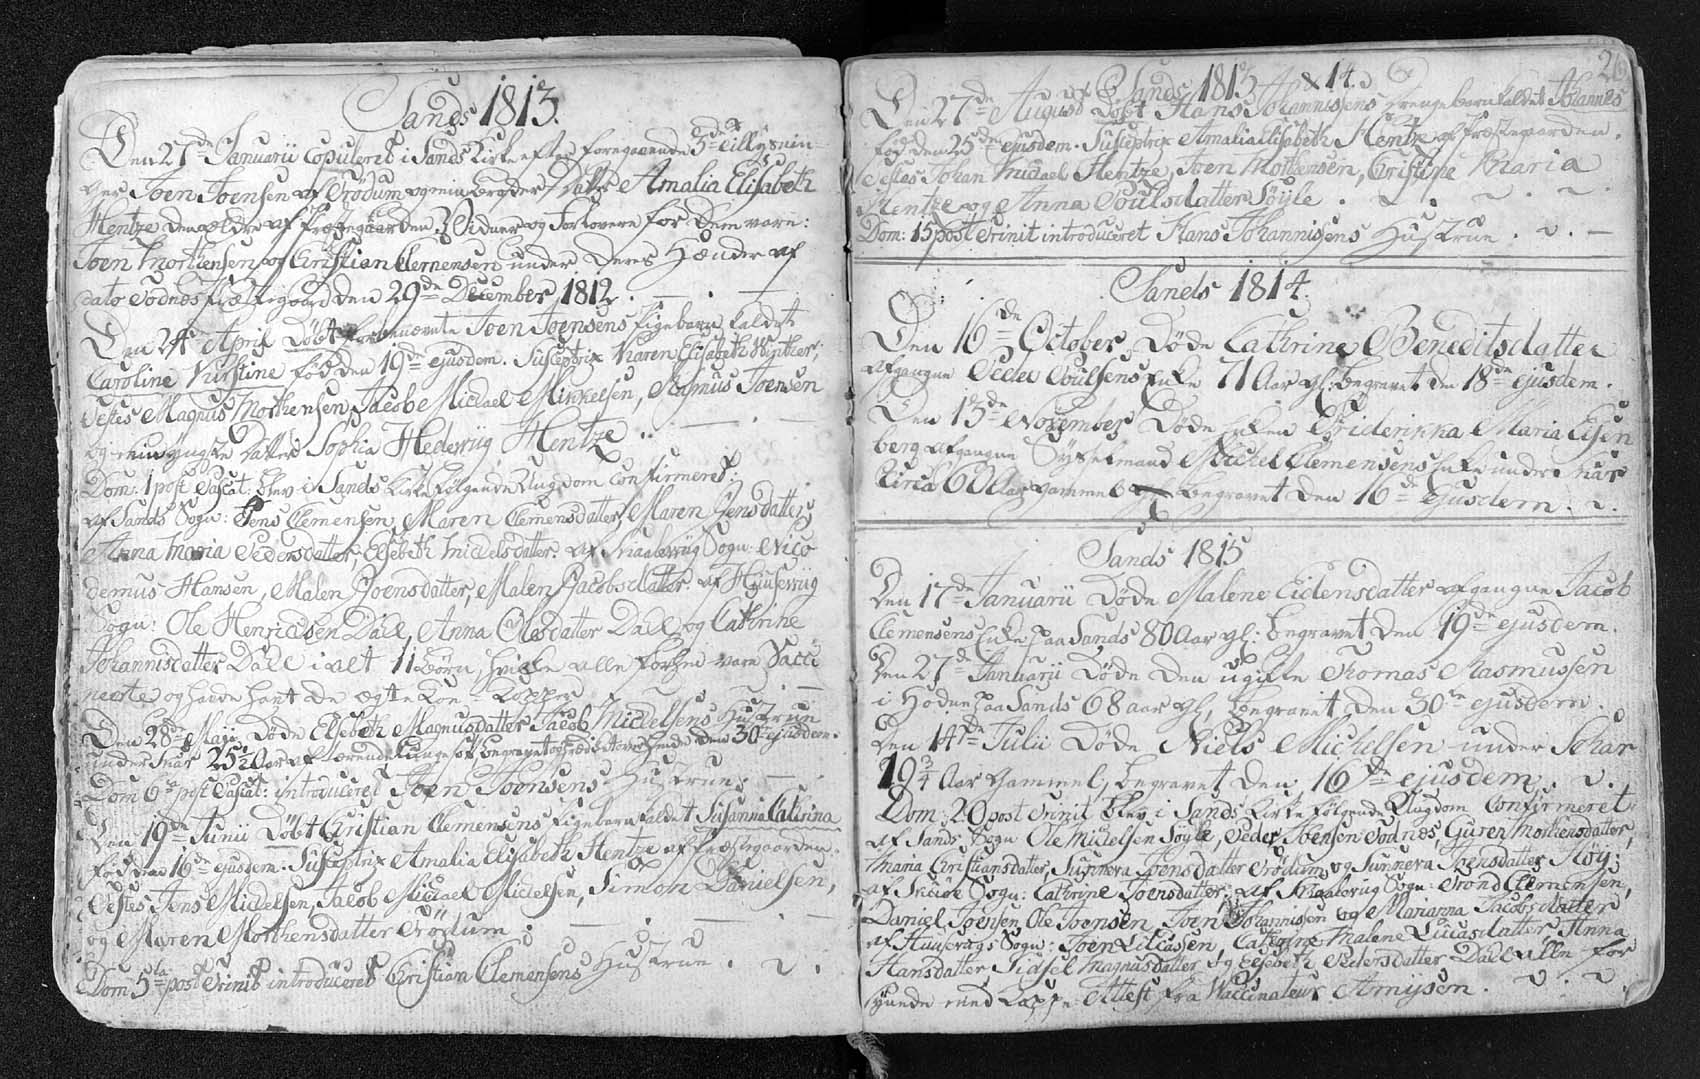 Sands 1813.
Den 27de Januarii Copuleret i Sands Kirke efter foregaaende 3de
Joen Joensen af Trödum og min Datter Amalia Elisabeth
Hentze den ældre af Præstegaarden. Vidner og Forlovere for dem vare:
Joen Morthensen og Christian Clemensen under Deres Hænder af
dato Todnes Præstegaard den 29de December 1812.
Den 24de April Döbt forbenævnte Joen Joensens Pigebarn kaldet
Caroline Kirstine föd den 19de ejusdem. Susceptrix Karen Elisabeth Winther,
Testes Magnus Morthensen, Jacob Michael Mikkelsen, Rasmus Joensen
og min yngste Datter Sophia Hedevig Hentze
Dom: 1 post Pascat: blev i Sands Kirke fölgende Ungdom Confirmeret.
af Sands Sogn: Jens Clemensen, Maren Clemensdatter, Maren Jensdatter,
Anna Maria Pedersdatter, Elsebeth Mickelsdatter. af Skaaleviig Sogn: Nico
demus Hansen, Malen Joensdatter, Malen Jacobsdatter. af Huuseviig
Sogn: Ole Henrichsen Dall, Anna Olesdatter Dall og Cathrine
Johannisdatter Dall i alt 11 Börn, hvilke alle forhen vare Vacci
nerte og havde havt de ægte Koe Kopper
Den 28de Maji Döde Elsebeth Magnusdatter Jacob Mickelsens Hustrue
under Skar 25½ Aar af begravet den 30te ejusdem.
Dom 6te post Pascat: introduceret Joen Joensens Hustrue.
Den 19de Junii Döbt Christian Clemensens Pigebarn kaldet Susanna Catrina
föd den 16de ejusdem. Susceptrix Amalia Elisabeth Hentze af Præstegaarden.
Testes Jens Mickelsen, Jacob Michael Mickelsen, Simon Danielsen,
og Maren Morthensdatter Trödum.
Dom 5ta post Trinit introduceret Christian Clemensens Hustrue.
26
Sands 1813 & 14.
Den 27de August Döbt Hans Johannisens Drengebarn kaldet Johannes
föd den 25de ejusdem. Susceptrix Amalia Elisabeth Hentze af Præstegaarden.
Testes Johan Michael Hentze, Joen Morthensen, Christine Maria
Hentze og Anna Poulsdatter Söyle.
Dom: 15 post Trinit introduceret Hans Johannisens Hustrue.
Sands 1814.
Den 16de October Döde Cathrine Beneditsdatter
afgangne Peder Poulsens Enke 71 Aar gl. begravet den 18de ejusdem.
Den 13de November Döde Enken Friderikka Maria Eisen
berg afgangne Sysselmand Michel Clemensens Enke under Skar
circa 60 Aar gammel begravet den 16de ejusdem.
Sands 1815
Den 17de Januarii Döde Malene Eidensdatter afgangne Jacob
Clemensens Enke paa Sands 80 Aar gl: begravet den 19de ejusdem.
Den 27de Januarii Döde den ugifte Thomas Rasmussen
i Heden paa Sands 68 aar gl, begravet den 30te ejusdem.
Den 14de Julii Döde Niels Michelsen under Skar
19¾ Aar gammel, begravet den 16de ejusdem.
Dom: 20 post Trinit blev i Sands Kirke fölgende Ungdom Confirmeret.
af Sands Sogn Ole Mickelsen Söyle, Peder Joensen Todnes, Guren Morthensdatter,
Maria Christiansdatter, Sunneva Joensdatter Trödum og Sunneva Joensdatter Höy;
af Skuöe Sogn: Cathrine Joensdatter; af Skaalevig Sogn: Trond Clemensen,
Daniel Joensen, Ole Joensen, Joen Johannissen og Marianna Jacobsdatter
af Huusevigs Sogn: Joen Lucassen, Cathrine Malene Lucasdatter, Anna
Hansdatter, Sidsel Magnusdatter og Elsebeth Pedersdatter Dall alle for
synede med Koppe Attest fra Waccinateur Arnysen.